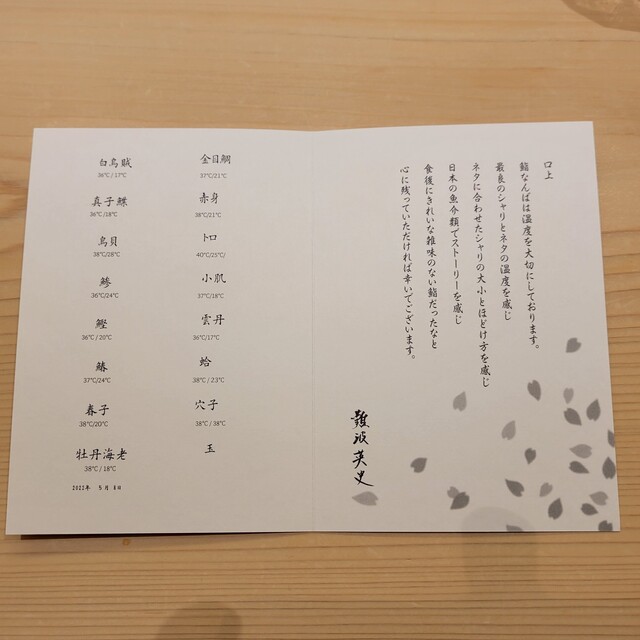 白烏賊
36℃/17℃
真子鰈
36℃/18℃
鳥貝
38℃/28℃
鯵
36℃/24℃
鰹
36℃/20℃
鰆
37℃/24℃
春子
38℃/20℃
牡丹海老
38℃/18℃
2022年 5月 8日
金目鯛
37℃/21℃
赤身
38℃/21℃
トロ
40℃/25℃/
小肌
37℃/18℃
雲丹
36℃/17℃
蛤
38℃/23℃
穴子
38℃/38℃
玉
口上
鮨なんばは温度を大切にしております。
最良のシャリとネタの温度を感じ
ネタに合わせたシャリの大小とほどけ方を感じ
日本の魚介類でストーリーを感じ
食後にきれいな雑味のない鮨だったなと
心に残っていただければ幸いでございます。
難波英史